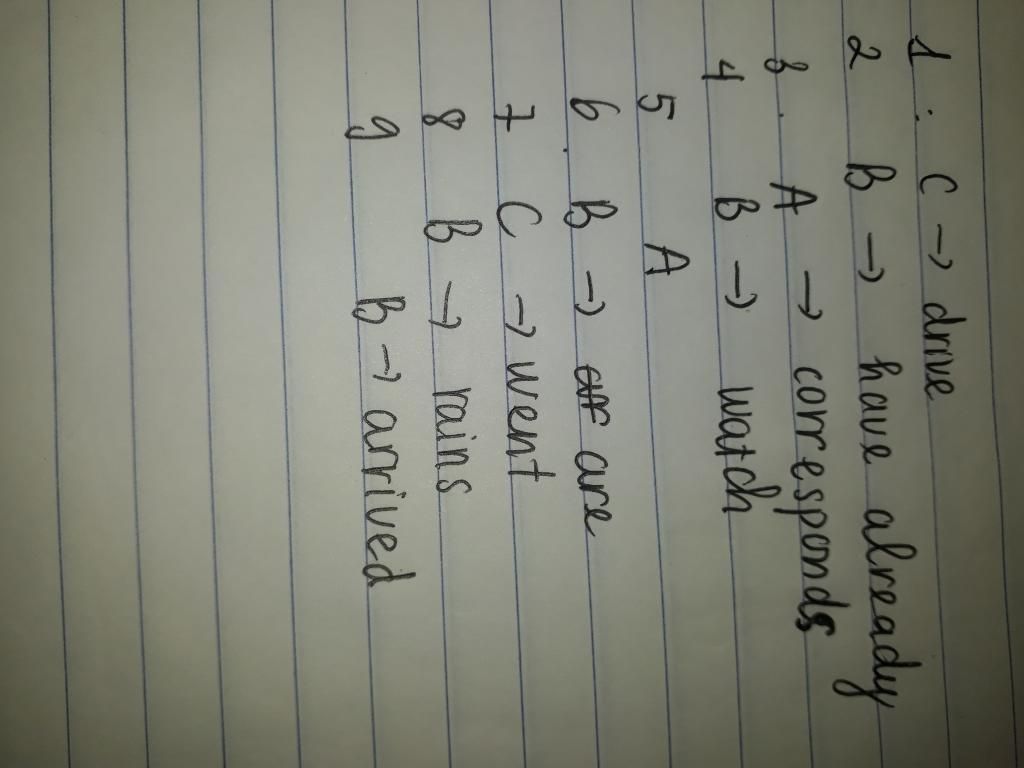 1. C → drive
2 B → have already
3. A → corresponds
4 B → watch
5 A
6. B → are
7 C → went
8 B → rains
9 B → arrived